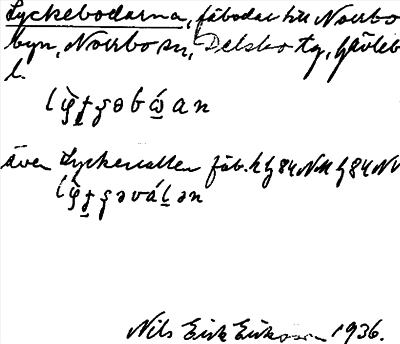 Lyckebodarna, fäbodar till Norrbo
byn, Norrbo sn, Delsbo tg, Gävleb
l.
även Lyckevallen fäb. h g 84 NM g 84 NV
Nils Erik Eriksson 1936.